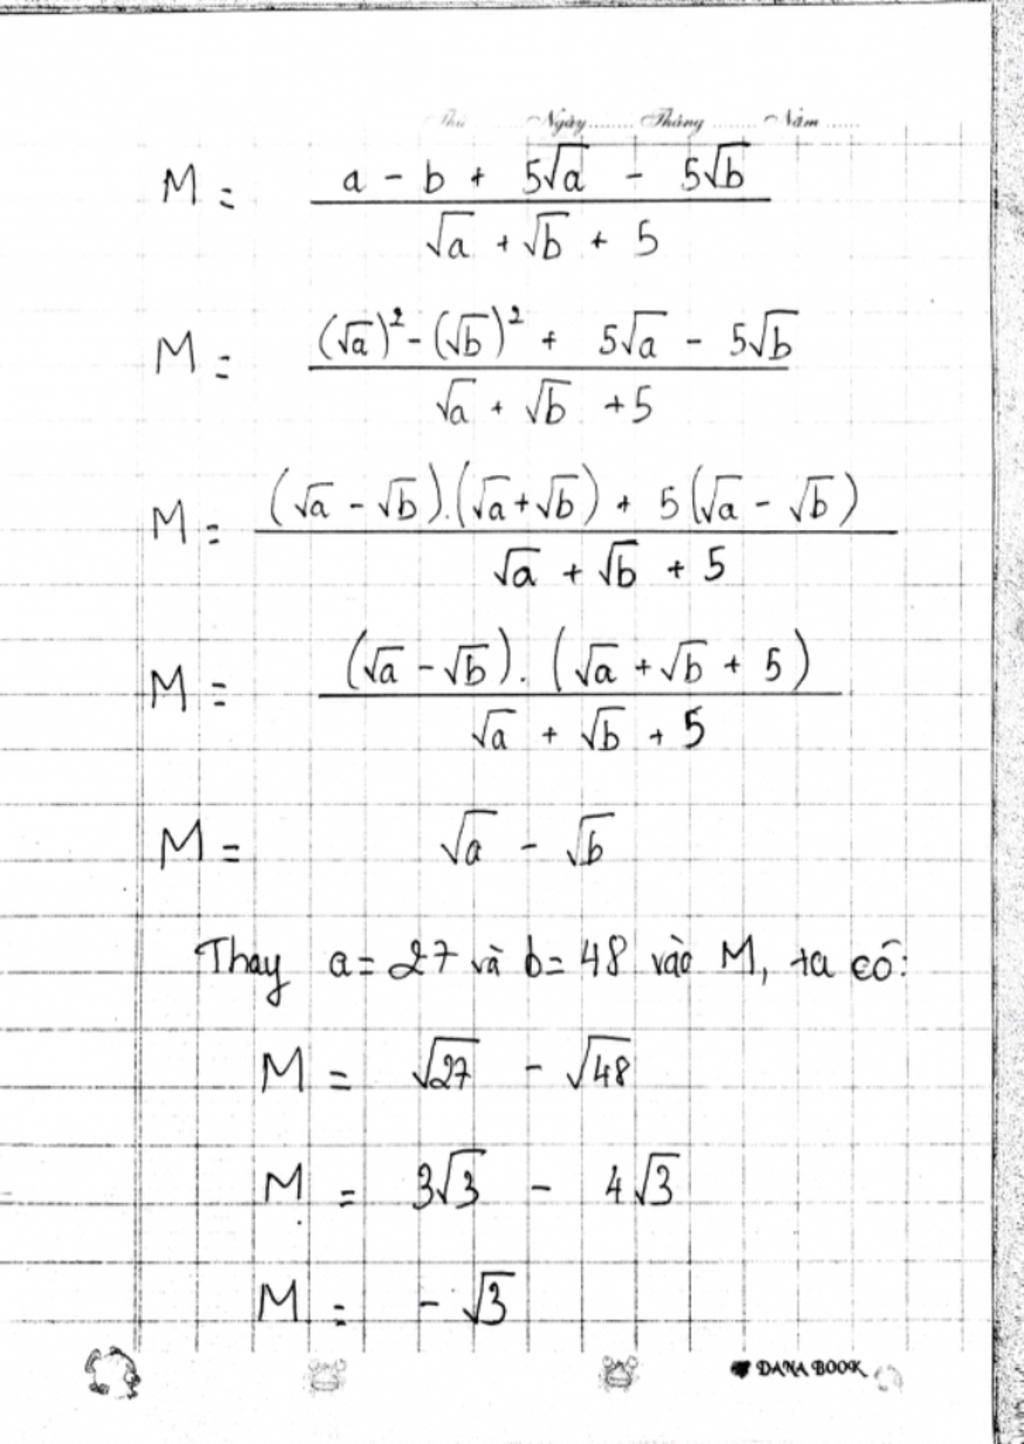 Thứ ........ Ngày ........ Tháng ........ Năm ......
M = (a - b + 5√a - 5√b) / (√a + √b + 5)
M = ((√a)² - (√b)² + 5√a - 5√b) / (√a + √b + 5)
M = ((√a - √b).(√a + √b) + 5(√a - √b)) / (√a + √b + 5)
M = ((√a - √b).(√a + √b + 5)) / (√a + √b + 5)
M = √a - √b
Thay a = 27 và b = 48 vào M, ta có:
M = √27 - √48
M = 3√3 - 4√3
M = - √3
DANA BOOK